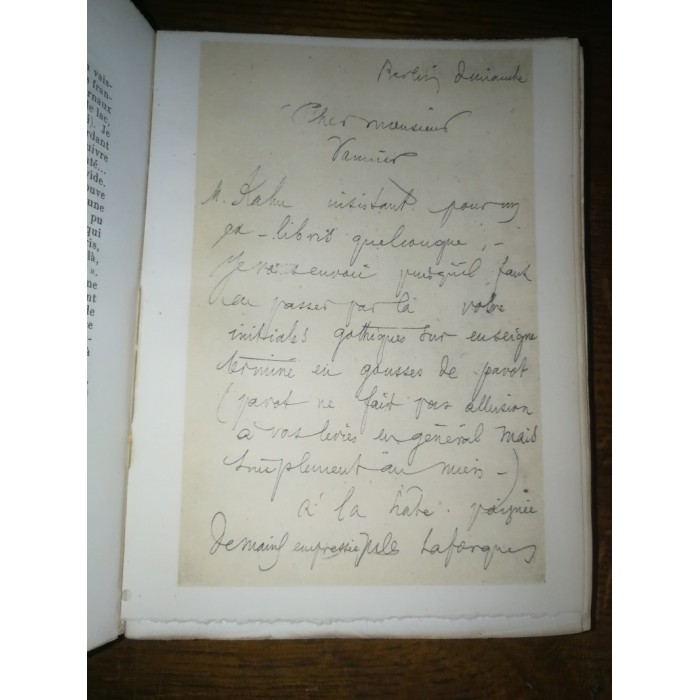 vais-
fran-
rnaux
lac,
). Je
rdant
uivre
té...
vide.
ouve
une
pu
qui
ris,
là,
».
ne
ent
de
e
-
à
Berlin Dimanche
Cher monsieur
Vannier
M. Kahn insistant pour un
ex-libris quelconque, -
Je vs envoie puisqu'il faut
en passer par là votre
initiales gothiques sur enseigne
terminé en gousses de pavot
(pavot ne fait pas allusion
à vos livres en général mais
simplement au mien -)
à la hâte. poignée
de mains empressée Jules Laforgue